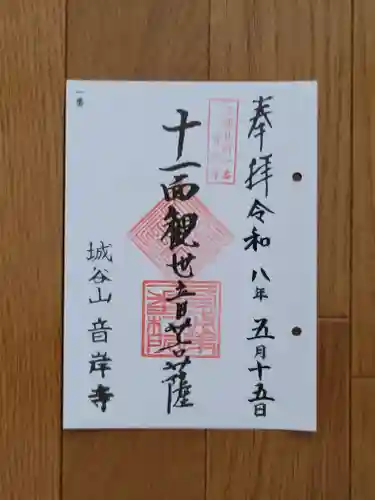 奉拝 令和八年 五月十五日
十一面観世音菩薩
城谷山 音岸寺
一番